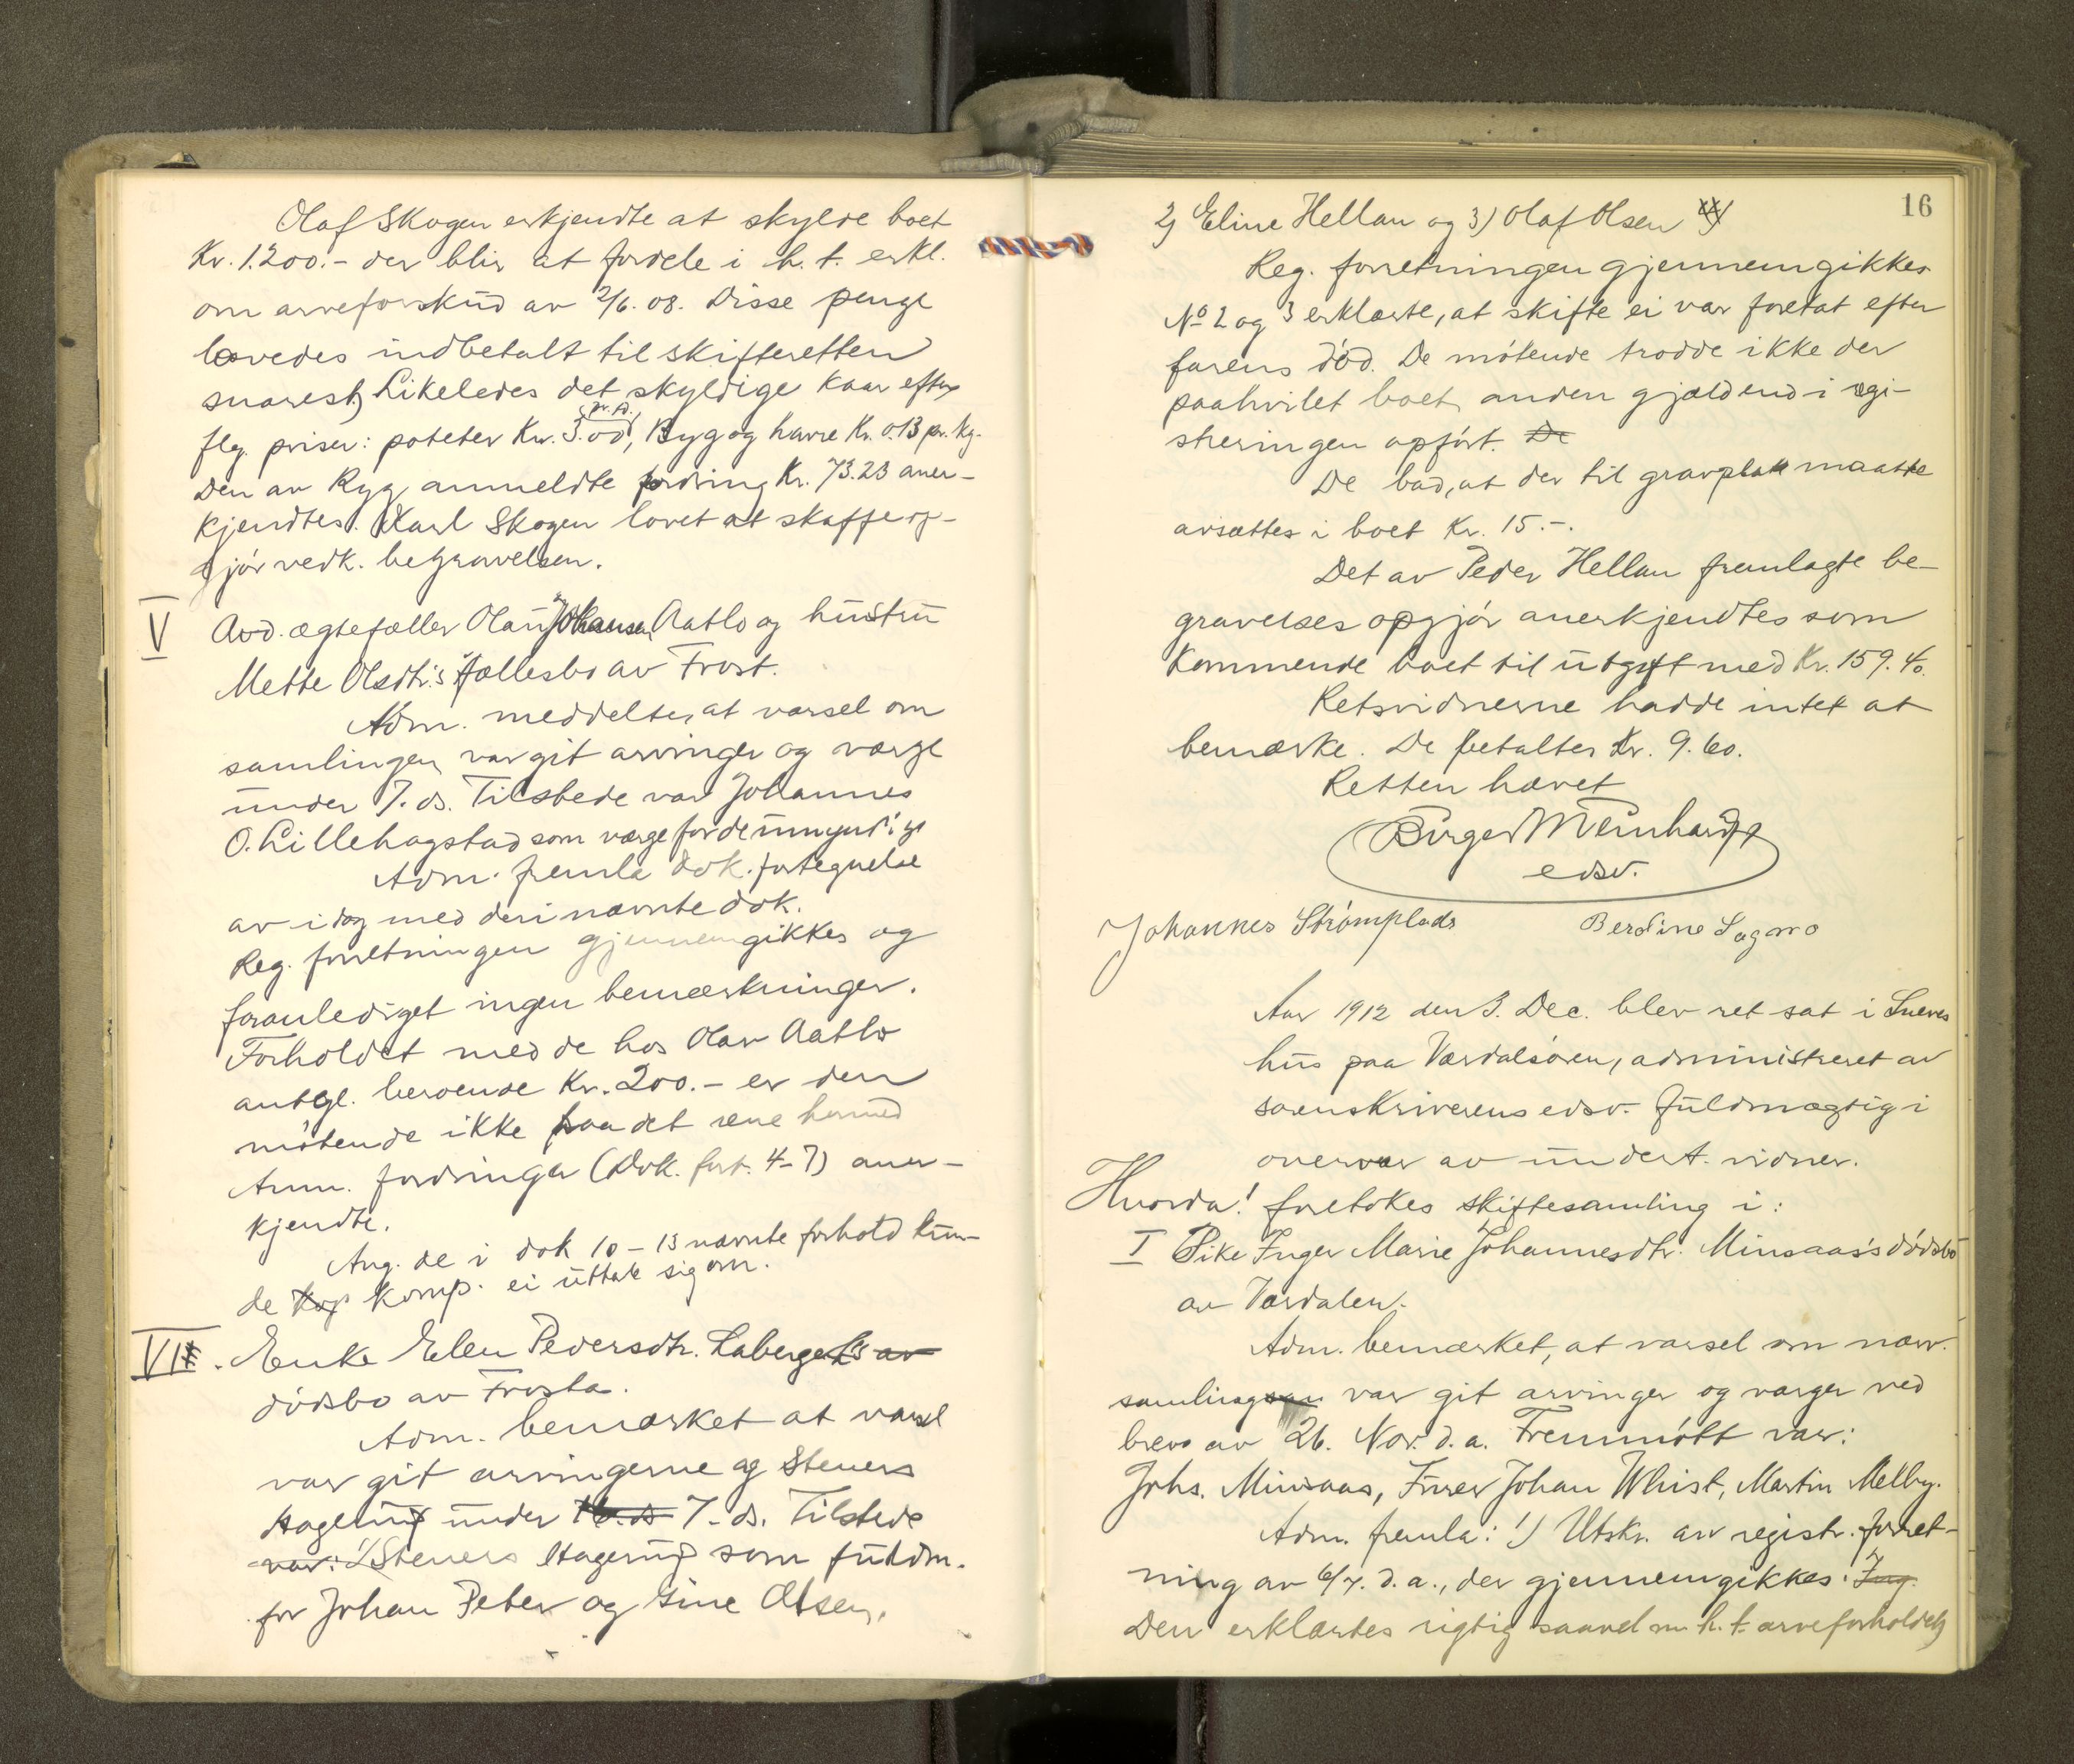 Olaf Skogen erkjendte at skylde boet
Kr. 1.200.- der blir at fordele i h. t. erkl.
om arveforskud av 2/6.08. Disse penge
lovedes indbetalt til skifteretten
snarest, Likeledes det skyldige kaar efter
flg. priser: poteter Kr. 3.00, Byg og havre Kr. 0.13 pr. kg.
Den av Ryg anmeldte fordring Kr. 73.23 aner-
kjendtes. Karl Skogen lovet at skaffe op-
gjør vedk. begravelsen.
V Avd. ægtefæller Olaus Johansen Aatlo og hustru
Mette Olsdtr.'s fællesbo av Frost.
Adm. meddelte, at varsel om
samlingen var git arvinger og værge
under 7. ds. Tilstede var Johannes
O. Lillehagstad som værge for de umyndige
Adm. fremla dok. fortegnelse
av idag med deri nævnte dok.
Reg. forretningen gjennemgikkes og
foranlediget ingen bemærkninger.
Forholdet med de hos Olav Aatlo
antgl. beroende Kr. 200.- er den
møtende ikke paa det rene hermed
Anm. fordringer (Dok. fort. 4-7) aner-
kjendte.
Ang. de i dok 10-13 nævnte forhold kun-
de komp. ei uttale sig om.
VI. Enke Elen Pedersdtr. Laberget's av
dødsbo av Frosta.
Adm. bemærket at varsel
var git arvingerne og Steners
Hagerup under 16. ds 7. ds. Tilstede
var: 1) Steners Hagerup som fuldm.
for Johan Peter og Gine Olsen,
16
2) Eline Hellan og 3) Olaf Olsen
Reg. forretningen gjennemgikkes
No 2 og 3 erklærte, at skifte ei var foretat efter
farens død. De møtende trodde ikke der
paahvilet boet anden gjæld end i regi-
streringen opført. De
De bad, at der til gravplate maatte
avsættes i boet Kr. 15.-.
Det av Peder Hellan fremlagte be-
gravelses opgjør anerkjendtes som
kommende boet til utgift med Kr. 159.40.
Retsvidnerne hadde intet at
bemærke. De betaltes Kr. 9.60.
Retten hævet
Birger Meinhardt
edsv.
Johannes Strømplads Berdine Sagmo
Aar 1912 den 3. Dec. blev ret sat i Sneves
hus paa Værdalsøren, administreret av
sorenskriverens edsv. fuldmægtig i
overvær av undert. vidner.
Hvorda! foretokes skiftesamling i:
I Pike Inger Marie Johannesdtr. Minsaas's dødsbo
av Værdalen.
Adm. bemærket, at varsel om nærv.
samling var git arvinger og værger ved
brev av 26. Nov. d. a. Fremmøtt var:
Johs. Minsaas, Furer Johan Whist, Martin Melby.
Adm. fremla: 1) Utskr. av registr. forret-
ning av 6/7. d. a., der gjennemgikkes. Ing.
Den erklærtes rigtig saavel m. h. t. arveforholdet